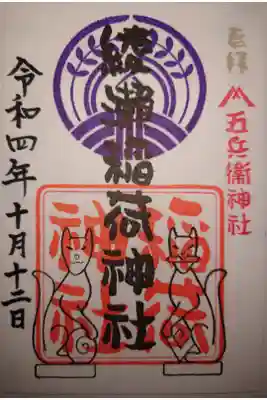 奉拝
五兵衛神社
綾瀬稲荷神社
稲荷
神社
令和四年十月十二日